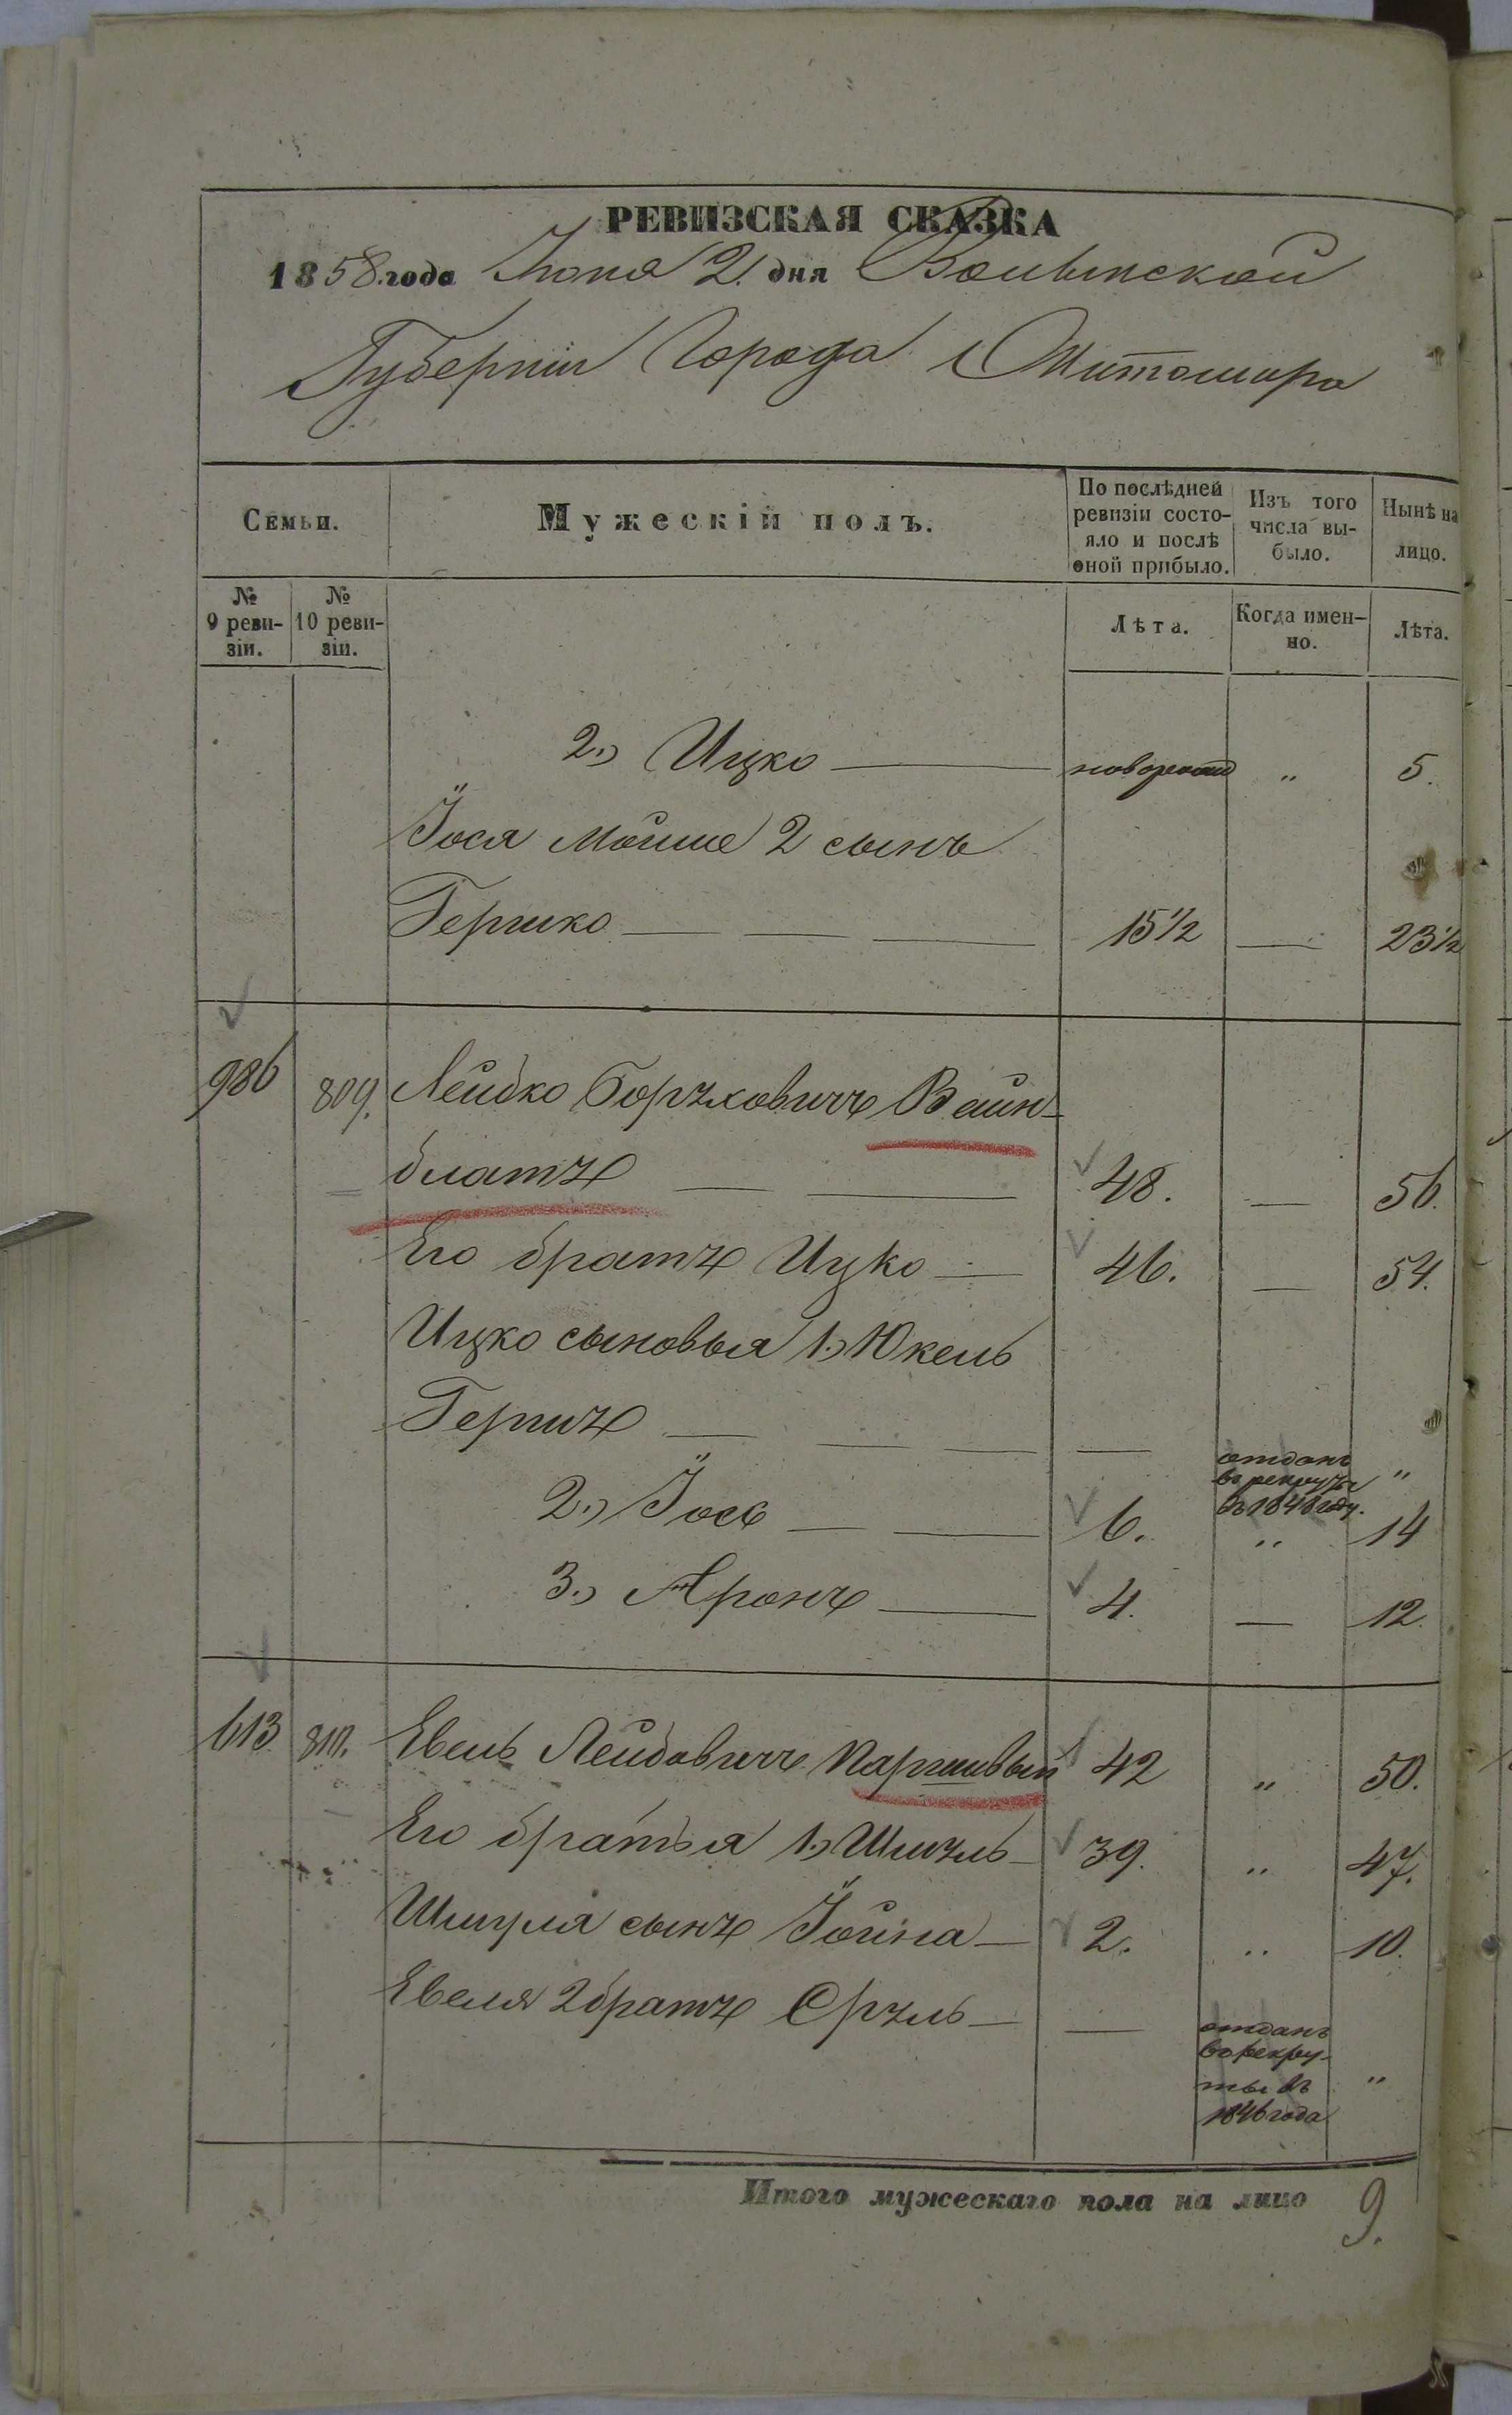 РЕВИЗСКАЯ СКАЗКА
1858 года Іюня 2. дня Волынской
Губерніи Города Житомира
Семьи.
Мужескій полъ.
По послѣдней ревизіи состо-
яло и послѣ оной прибыло.
Изъ того числа вы-
было.
Нынѣ на лицо.
№ 9 реви-
зіи.
№ 10 реви-
зіи.
Лѣта.
Когда имен-
но.
Лѣта.
2.) Ицко — „ 5.
Іося Мошше 2 сынъ
Гершко — — — 15½ — 23½
986 809. Лейбко Боруховичъ Вайн-
блатъ — — 48. — 56.
Его братъ Ицко — 46. — 54.
Ицко сыновья 1.) Юкель
Гершъ — — — — — отданъ в рекруты въ 1848 году. „
2.) Іось — — 6. „ 14
3.) Аронъ — 4. — 12.
613 810. Евель Лейбовичъ Паршивый 42 „ 50.
Его братья 1.) Шмуль — 39. „ 47.
Шмуля сынъ Іойна — 2. „ 10.
Евеля 2 братъ Сруль — — отданъ в рекру-
ты въ 1846 года „
Итого мужескаго пола на лицо 9.